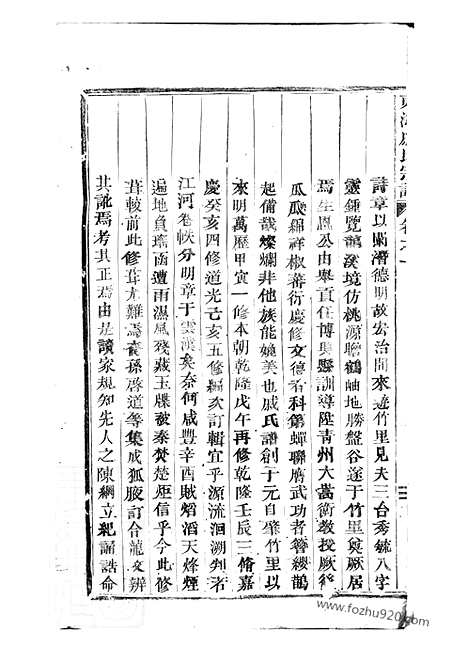 東海戚氏宗譜
詩章以蘭溍德明故宏治間來遊竹里見夫三台秀毓八字
靈鍾覽鸂溪境仿桃源瞻鶴岫地勝盤谷遂于竹里奠厥居
焉生恩公由舉貢任博興縣訓導陞青州大嵩衛教授厥後
瓜瓞綿祥椒蕃衍慶修文德者科第蟬聯膺武功者簪纓鵲
起備哉燦爛非他族能媲美也戚氏譜創于元自肇竹里以
來明萬曆甲寅一修本朝乾隆戊午再修乾隆壬辰三脩嘉
慶癸亥四修道光己亥五修編次訂輯宜乎源流洄溯判若
江河卷帙分明章于雲漢矣奈何咸豐辛酉賊熖滔天烽煙
遍地負瑶函遭雨濕風殘藏玉牒被秦焚楚炬信乎今此修
葺較前此修葺尤難焉養孫啓道等集成狐腋訂合龍文辨
其訛焉考其正焉由是讀家規知先人之陳綱立紀誦誥命
www.fozhu920.com